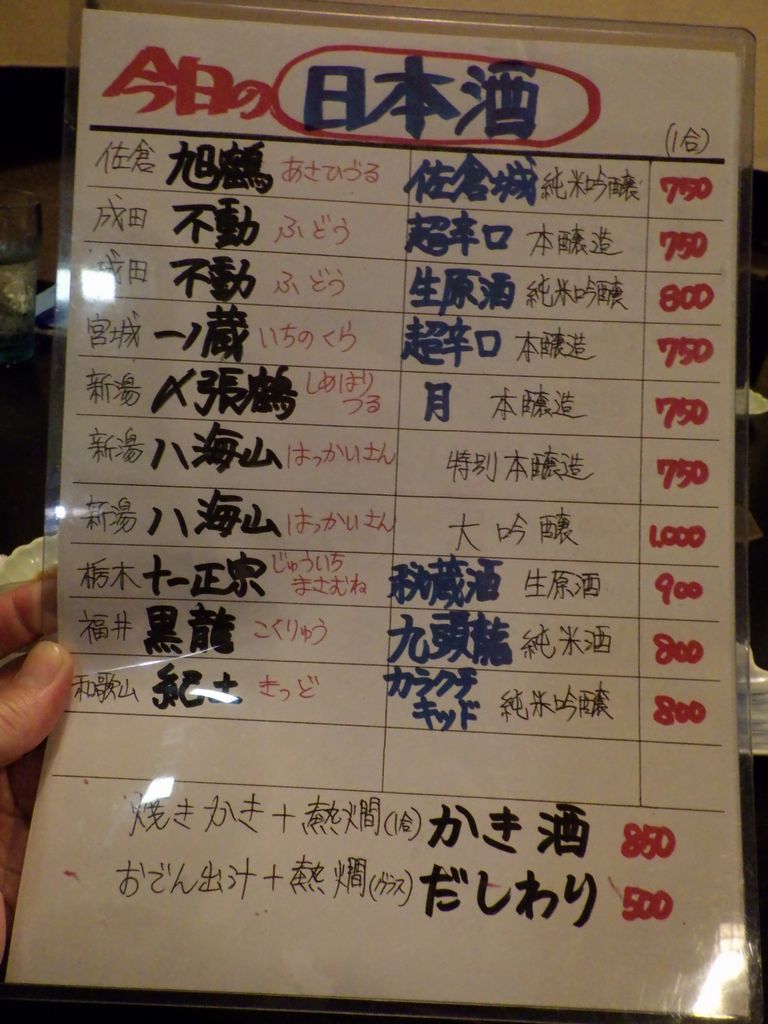 今日の日本酒
(1合)
佐倉 旭鶴 あさひづる 佐倉城 純米吟醸 750
成田 不動 ふどう 超辛口 本醸造 750
成田 不動 ふどう 生原酒 純米吟醸 800
宮城 一ノ蔵 いちのくら 超辛口 本醸造 750
新潟 〆張鶴 しめはりつる 月 本醸造 750
新潟 八海山 はっかいさん 特別本醸造 750
新潟 八海山 はっかいさん 大吟醸 1,000
栃木 十一正宗 じゅういちまさむね 秘蔵酒 生原酒 900
福井 黒龍 こくりゅう 九頭龍 純米酒 800
和歌山 紀土 きっど カラクチキッド 純米吟醸 800
焼きかき+熱燗(1合) かき酒 850
おでん出汁+熱燗(グラス) だしわり 500